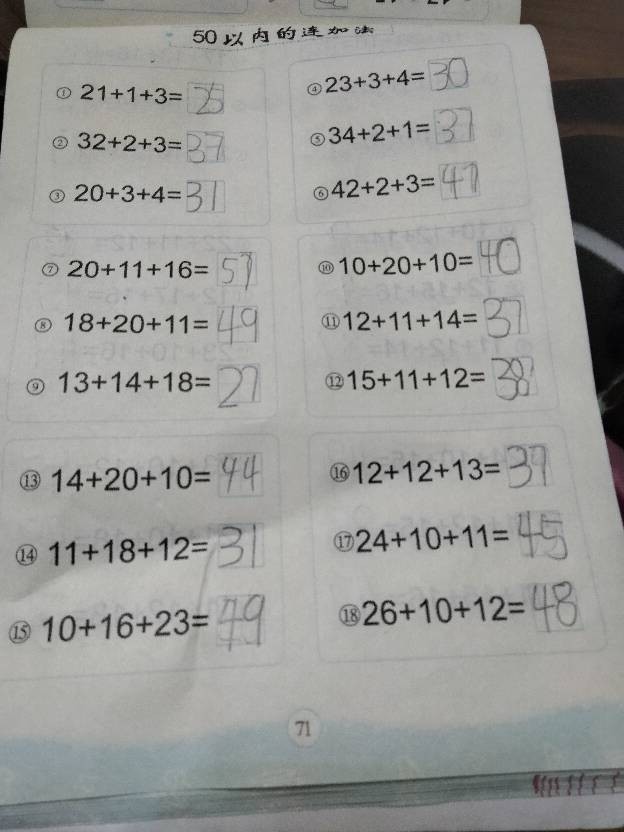 50以内的连加法
① 21+1+3=25
④ 23+3+4=30
② 32+2+3=37
⑤ 34+2+1=37
③ 20+3+4=31
⑥ 42+2+3=47
⑦ 20+11+16=57
⑩ 10+20+10=40
⑧ 18+20+11=49
⑪ 12+11+14=37
⑨ 13+14+18=27
⑫ 15+11+12=38
⑬ 14+20+10=44
⑯ 12+12+13=37
⑭ 11+18+12=31
⑰ 24+10+11=45
⑮ 10+16+23=49
⑱ 26+10+12=48
71